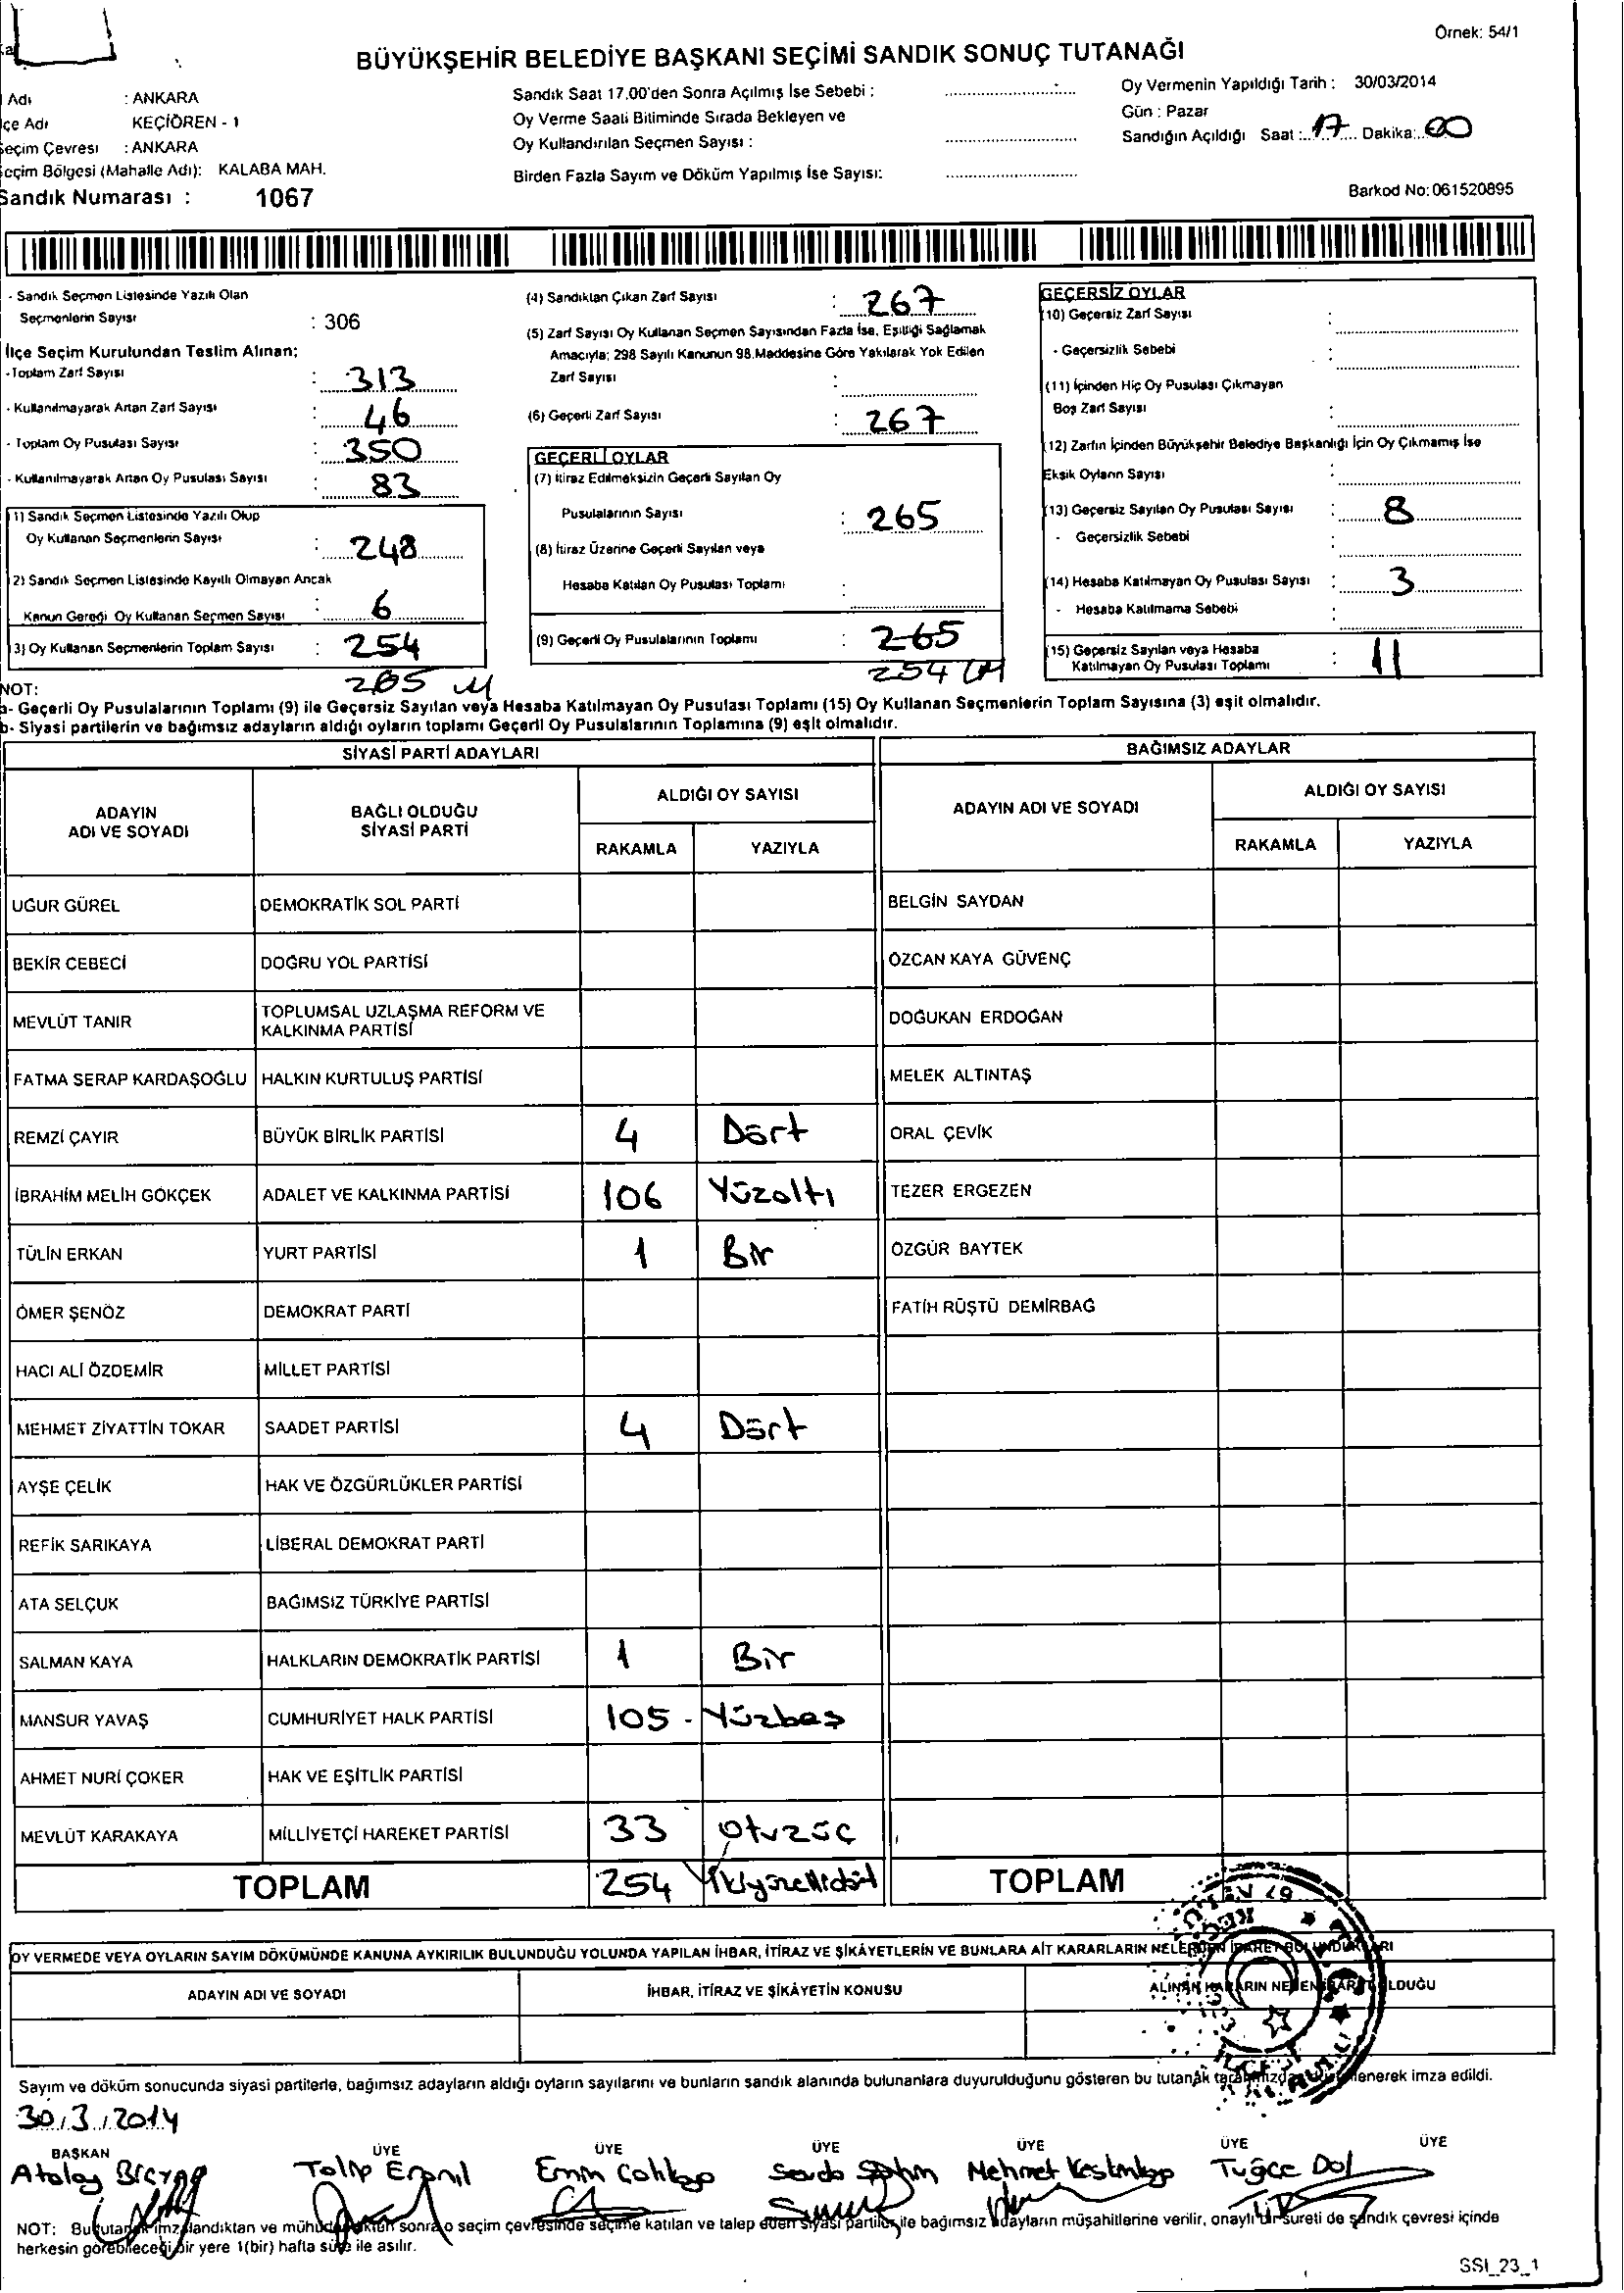 Örnek: 54/1
BÜYÜKŞEHİR BELEDİYE BAŞKANI SEÇİMİ SANDIK SONUÇ TUTANAĞI
Adı : ANKARA
çe Adı KEÇİÖREN - 1
eçim Çevresi : ANKARA
eçim Bölgesi (Mahalle Adı): KALABA MAH.
Sandık Numarası : 1067
Sandık Saat 17.00'den Sonra Açılmış İse Sebebi :
Oy Verme Saati Bitiminde Sırada Bekleyen ve
Oy Kullandırılan Seçmen Sayısı :
Birden Fazla Sayım ve Döküm Yapılmış İse Sayısı:
Oy Vermenin Yapıldığı Tarih : 30/03/2014
Gün : Pazar
Sandığın Açıldığı Saat : 17 Dakika: 00
Barkod No: 061520895
- Sandık Seçmen Listesinde Yazılı Olan
Seçmenlerin Sayısı : 306
İlçe Seçim Kurulundan Teslim Alınan;
- Toplam Zarf Sayısı : 313
- Kullanılmayarak Artan Zarf Sayısı : 46
- Toplam Oy Pusulası Sayısı : 350
- Kullanılmayarak Artan Oy Pusulası Sayısı : 83
1) Sandık Seçmen Listesinde Yazılı Olup
Oy Kullanan Seçmenlerin Sayısı : 248
2) Sandık Seçmen Listesinde Kayıtlı Olmayan Ancak
Kanun Gereği Oy Kullanan Seçmen Sayısı : 6
3) Oy Kullanan Seçmenlerin Toplam Sayısı : 254
265
(4) Sandıktan Çıkan Zarf Sayısı : 267
(5) Zarf Sayısı Oy Kullanan Seçmen Sayısından Fazla İse, Eşitliği Sağlamak
Amacıyla; 298 Sayılı Kanunun 98.Maddesine Göre Yakılarak Yok Edilen
Zarf Sayısı :
(6) Geçerli Zarf Sayısı : 267
GEÇERLİ OYLAR
(7) İtiraz Edilmeksizin Geçerli Sayılan Oy
Pusulalarının Sayısı : 265
(8) İtiraz Üzerine Geçerli Sayılan veya
Hesaba Katılan Oy Pusulası Toplamı :
(9) Geçerli Oy Pusulalarının Toplamı : 265
254
GEÇERSİZ OYLAR
(10) Geçersiz Zarf Sayısı :
- Geçersizlik Sebebi :
(11) İçinden Hiç Oy Pusulası Çıkmayan
Boş Zarf Sayısı :
(12) Zarfın İçinden Büyükşehir Belediye Başkanlığı İçin Oy Çıkmamış İse
Eksik Oyların Sayısı :
(13) Geçersiz Sayılan Oy Pusulası Sayısı : 8
- Geçersizlik Sebebi :
(14) Hesaba Katılmayan Oy Pusulası Sayısı : 3
- Hesaba Katılmama Sebebi :
(15) Geçersiz Sayılan veya Hesaba
Katılmayan Oy Pusulası Toplamı : 11
NOT:
a- Geçerli Oy Pusulalarının Toplamı (9) ile Geçersiz Sayılan veya Hesaba Katılmayan Oy Pusulası Toplamı (15) Oy Kullanan Seçmenlerin Toplam Sayısına (3) eşit olmalıdır.
b- Siyasi partilerin ve bağımsız adayların aldığı oyların toplamı Geçerli Oy Pusulalarının Toplamına (9) eşit olmalıdır.
SİYASİ PARTİ ADAYLARI
BAĞIMSIZ ADAYLAR
ADAYIN
ADI VE SOYADI
BAĞLI OLDUĞU
SİYASİ PARTİ
ALDIĞI OY SAYISI
RAKAMLA YAZIYLA
ADAYIN ADI VE SOYADI
ALDIĞI OY SAYISI
RAKAMLA YAZIYLA
UĞUR GÜREL DEMOKRATİK SOL PARTİ BELGİN SAYDAN
BEKİR CEBECİ DOĞRU YOL PARTİSİ ÖZCAN KAYA GÜVENÇ
MEVLÜT TANIR TOPLUMSAL UZLAŞMA REFORM VE
KALKINMA PARTİSİ DOĞUKAN ERDOĞAN
FATMA SERAP KARDAŞOĞLU HALKIN KURTULUŞ PARTİSİ MELEK ALTINTAŞ
REMZİ ÇAYIR BÜYÜK BİRLİK PARTİSİ 4 Dört ORAL ÇEVİK
İBRAHİM MELİH GÖKÇEK ADALET VE KALKINMA PARTİSİ 106 Yüzaltı TEZER ERGEZEN
TÜLİN ERKAN YURT PARTİSİ 1 Bir ÖZGÜR BAYTEK
ÖMER ŞENÖZ DEMOKRAT PARTİ FATİH RÜŞTÜ DEMİRBAĞ
HACI ALİ ÖZDEMİR MİLLET PARTİSİ
MEHMET ZİYATTİN TOKAR SAADET PARTİSİ 4 Dört
AYŞE ÇELİK HAK VE ÖZGÜRLÜKLER PARTİSİ
REFİK SARIKAYA LİBERAL DEMOKRAT PARTİ
ATA SELÇUK BAĞIMSIZ TÜRKİYE PARTİSİ
SALMAN KAYA HALKLARIN DEMOKRATİK PARTİSİ 1 Bir
MANSUR YAVAŞ CUMHURİYET HALK PARTİSİ 105 - Yüzbeş
AHMET NURİ ÇOKER HAK VE EŞİTLİK PARTİSİ
MEVLÜT KARAKAYA MİLLİYETÇİ HAREKET PARTİSİ 33 Otuzüç
TOPLAM 254 İkiyüzellidört TOPLAM
OY VERMEDE VEYA OYLARIN SAYIM DÖKÜMÜNDE KANUNA AYKIRILIK BULUNDUĞU YOLUNDA YAPILAN İHBAR, İTİRAZ VE ŞİKÂYETLERİN VE BUNLARA AİT KARARLARIN NELERDEN İBARET BULUNDUKLARI
ADAYIN ADI VE SOYADI İHBAR, İTİRAZ VE ŞİKÂYETİN KONUSU ALINAN KARARIN NEDEN İBARET OLDUĞU
Sayım ve döküm sonucunda siyasi partilerle, bağımsız adayların aldığı oyların sayılarını ve bunların sandık alanında bulunanlara duyurulduğunu gösteren bu tutanak tarafımızdan enerek imza edildi.
30/3/2014
BAŞKAN ÜYE ÜYE ÜYE ÜYE ÜYE ÜYE
Atalay Talip Emin Sevda Mehmet Tuğçe
NOT: Bu tutanak imzalandıktan ve mühürlendikten sonra o seçim çevresinde seçime katılan ve talep eden siyasi partiler ile bağımsız adayların müşahitlerine verilir, onaylı bir sureti de sandık çevresi içinde
herkesin görebileceği bir yere 1(bir) hafta süre ile asılır.
SSI_23_1